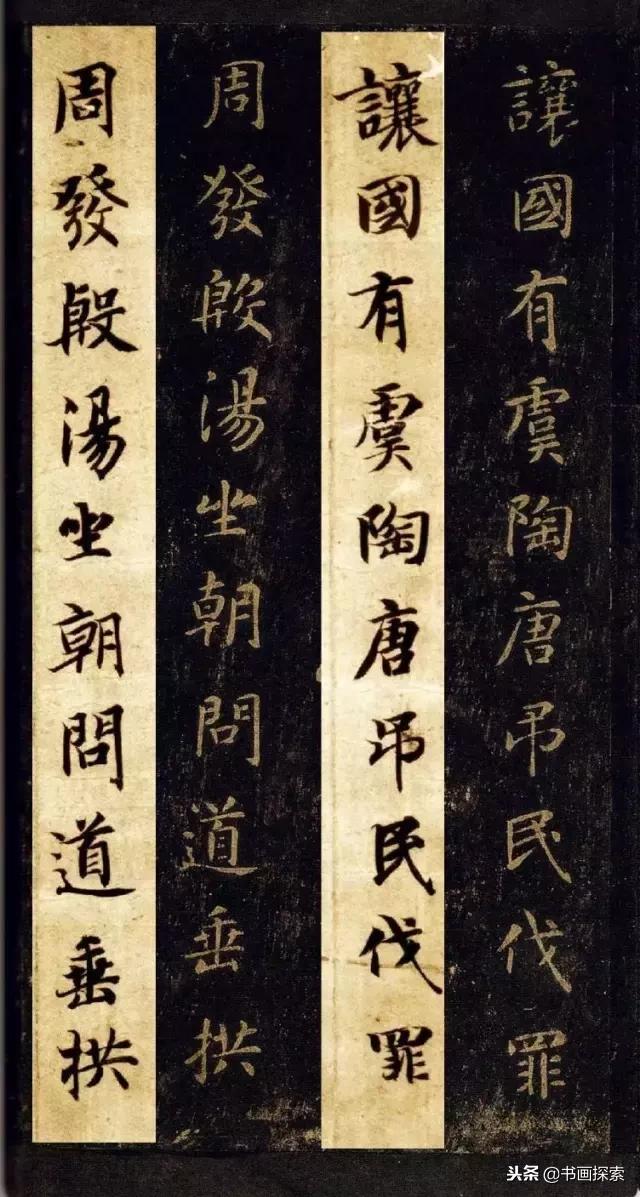 讓國有虞陶唐吊民伐罪
讓國有虞陶唐吊民伐罪
周發殷湯坐朝問道垂拱
周發殷湯坐朝問道垂拱
头条@书画探索